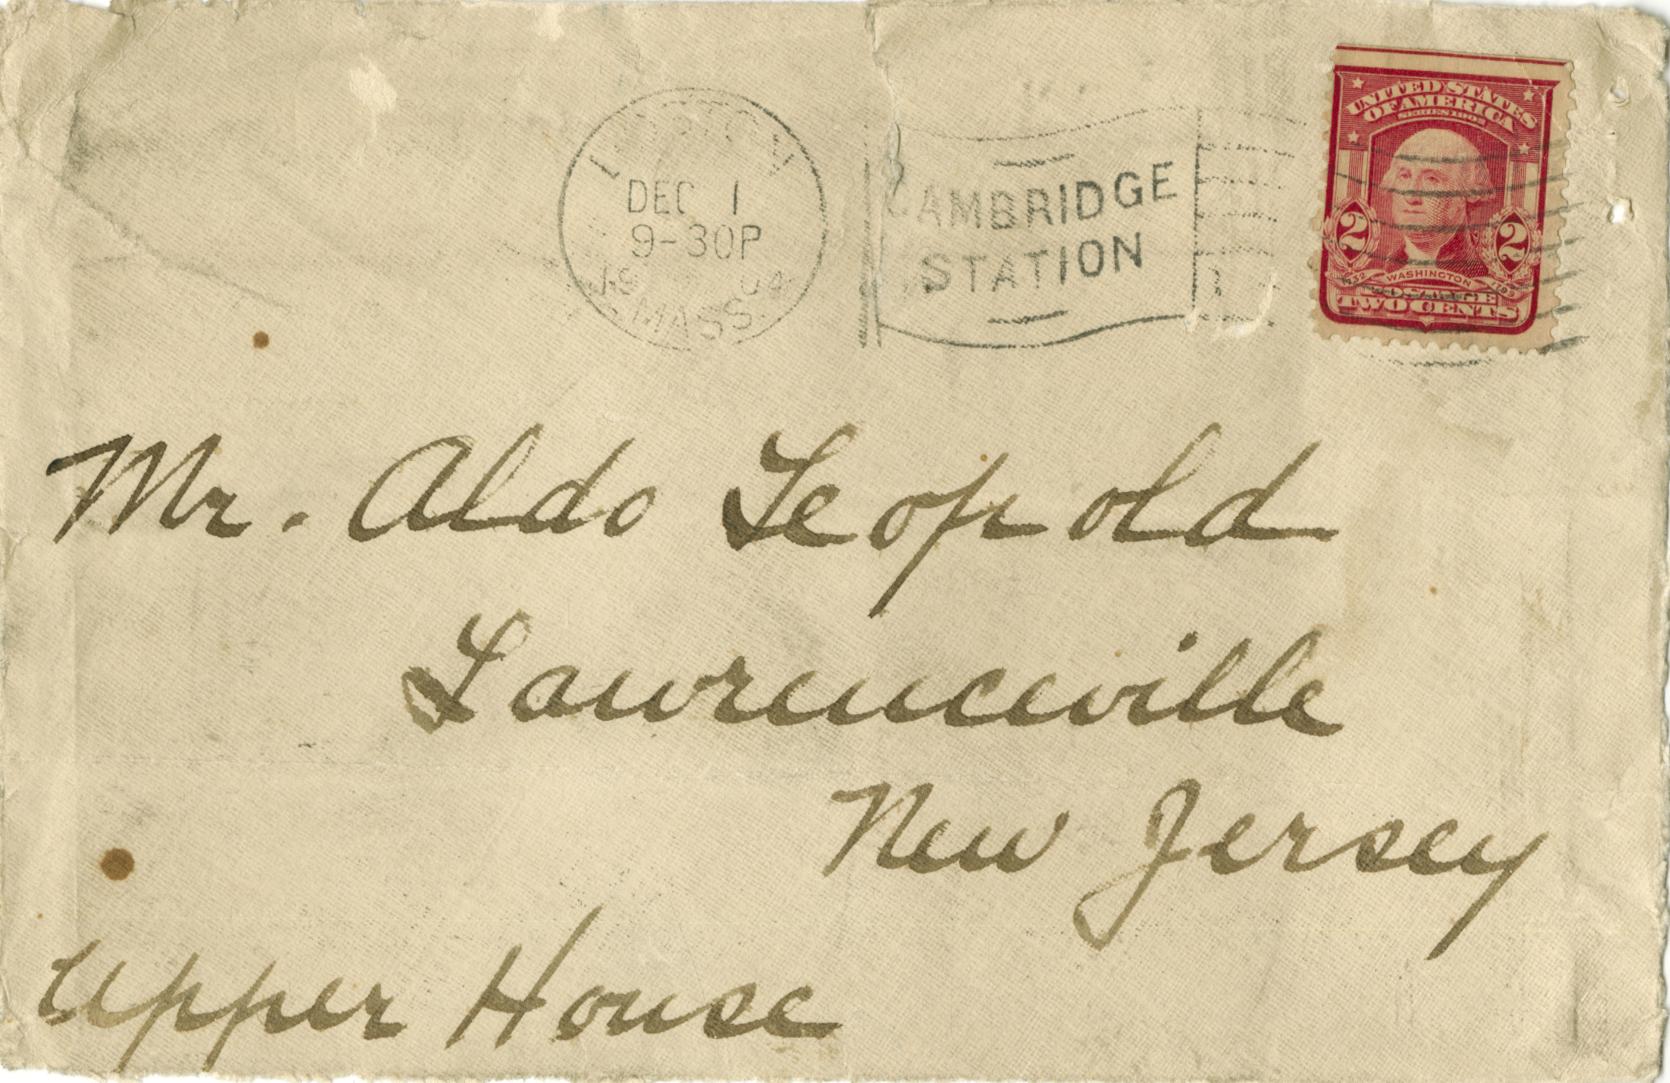 DEC 1
9-30P
1904
MASS.
CAMBRIDGE
STATION
UNITED STATES
OF AMERICA
SERIES 1902
2 2
1732 WASHINGTON 1799
POSTAGE
TWO CENTS
Mr. Aldo Leopold
Lawrenceville
New Jersey
Upper House